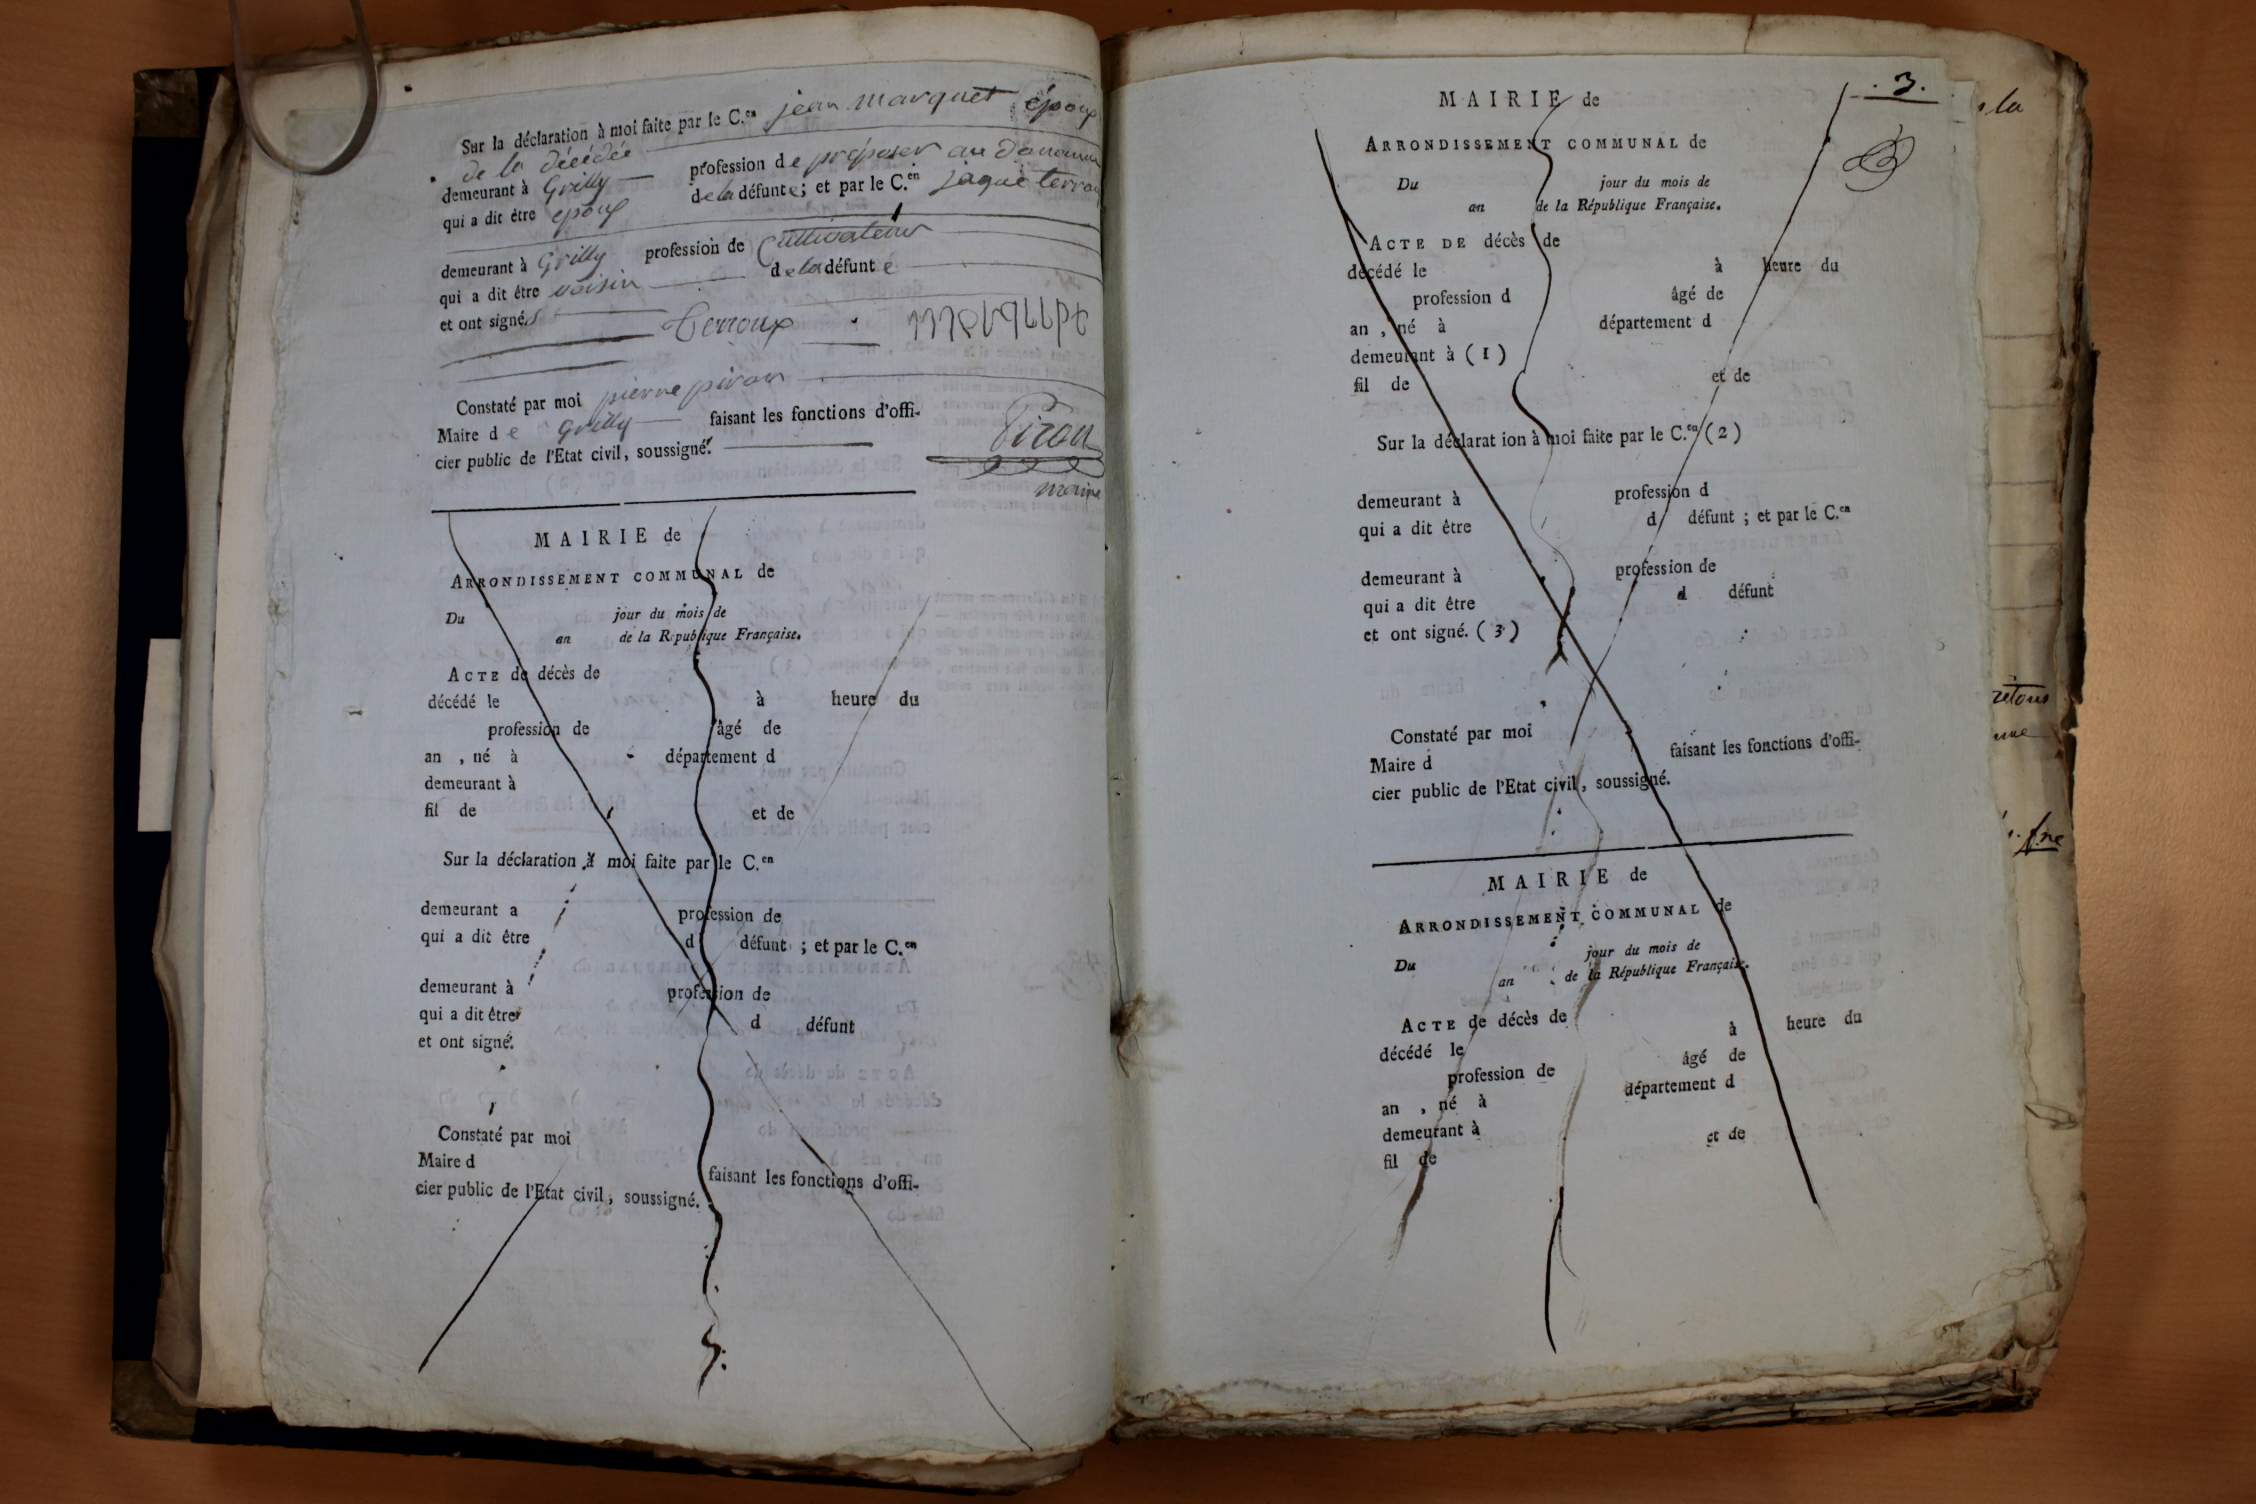 Sur la déclaration à moi faite par le C.en jean marquet époux
de la décédée
demeurant à Grilly profession de préposer au
qui a dit être epoux de la défunte; et par le C.en jaque terroux
demeurant à Grilly profession de Cultivateur
qui a dit être voisin de la défunte
et ont signés
Terroux
Constaté par moi pierre piron
Maire de Grilly faisant les fonctions d'offi-
cier public de l'Etat civil, soussigné.
Piron
maire
MAIRIE de
ARRONDISSEMENT COMMUNAL de
Du jour du mois de
an de la République Française.
ACTE de décès de
décédé le à heure du
profession de âgé de
an , né à département d
demeurant à
fil de et de
Sur la déclaration à moi faite par le C.en
demeurant a profession de
qui a dit être d défunt ; et par le C.en
demeurant à profession de
qui a dit être d défunt
et ont signé.
Constaté par moi
Maire d faisant les fonctions d'offi-
cier public de l'Etat civil, soussigné.
. 3 .
MAIRIE de
ARRONDISSEMENT COMMUNAL de
Du jour du mois de
an de la République Française.
ACTE DE décès de
décédé le à heure du
profession d âgé de
an , né à département d
demeurant à (1)
fil de et de
Sur la déclarat ion à moi faite par le C.en (2)
demeurant à profession d
qui a dit être d défunt ; et par le C.en
demeurant à profession de
qui a dit être d défunt
et ont signé. (3)
Constaté par moi
Maire d faisant les fonctions d'offi-
cier public de l'Etat civil, soussigné.
MAIRIE de
ARRONDISSEMENT COMMUNAL de
Du jour du mois de
an de la République Française.
ACTE de décès de
décédé le à heure du
profession de âgé de
an , né à département d
demeurant à
fil de et de
la